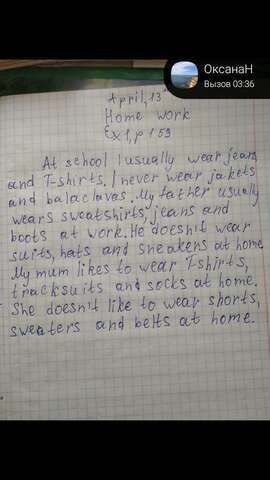 ОксанаН
Вызов 03:36
April, 13
Home work
Ex 1, p 159
At school I usually wear jeans
and T-shirts. I never wear jakets
and balaclavas. My father usually
wears sweatshirts, jeans and
boots at work. He doesn't wear
suits, hats and sneakens at home.
My mum likes to wear T-shirts,
tracksuits and socks at home.
She doesn't like to wear shorts,
sweaters and belts at home.